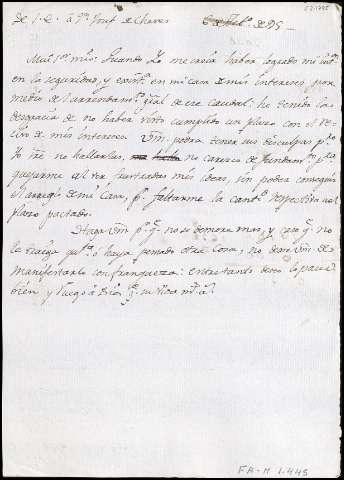 De S. E. a Dn. Josef de Chaves de 95
Mui Sor. mio: Quando Yo me creia haber logrado mi
en la seguridad, y en mi casa de mis intereses por
medio de arrendamto. gral. de ese caudal: he tenido la
desgracia de no haber visto cumplido un plazo con el re-
civo de mis intereses. Vm. podra tener sus disculpas pa.
Yo no hallarlas, no carezco de fundamto. pa.
quejarme al ver frustradas mis ideas, sin poder conseguir
el arreglo de mi Casa, pr. faltarme la cantd. respectiva al
plazo pactado.
Haga Vm. pr. qe. no se demore mas, y caso qe. no
le traiga cuta. o haya pensado otra cosa, no deje Vm. de
manifestarlo con franqueza: entretanto deseo lo pase
bien, y ruego a Dios qe. su Vida ms. as.
FA-M 1.445